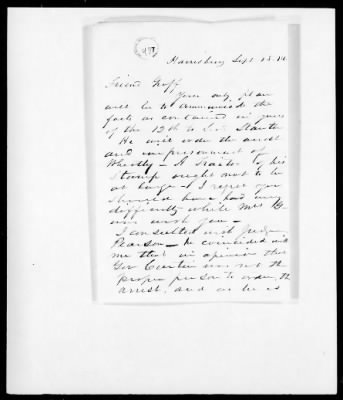 Harrisburg Sept 15.
Friend Groff
Your only plan
will be to communicate the
facts as contained in yours
of the 12th to
He will order the arrest
and imprisonment of
A Traitor of his
stamp ought not to be
at large. I regret you
should have had any
difficulty while Mrs G.
was with you
I consulted with Judge
Pearson he coincided with
me that in opinion that
Gov Curtin was not the
proper person to order the
arrest, and as he is